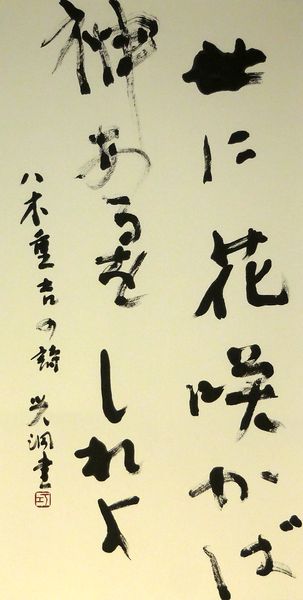 世に花咲かば
神あるをしれよ
八木重吉の詩 笑洞書